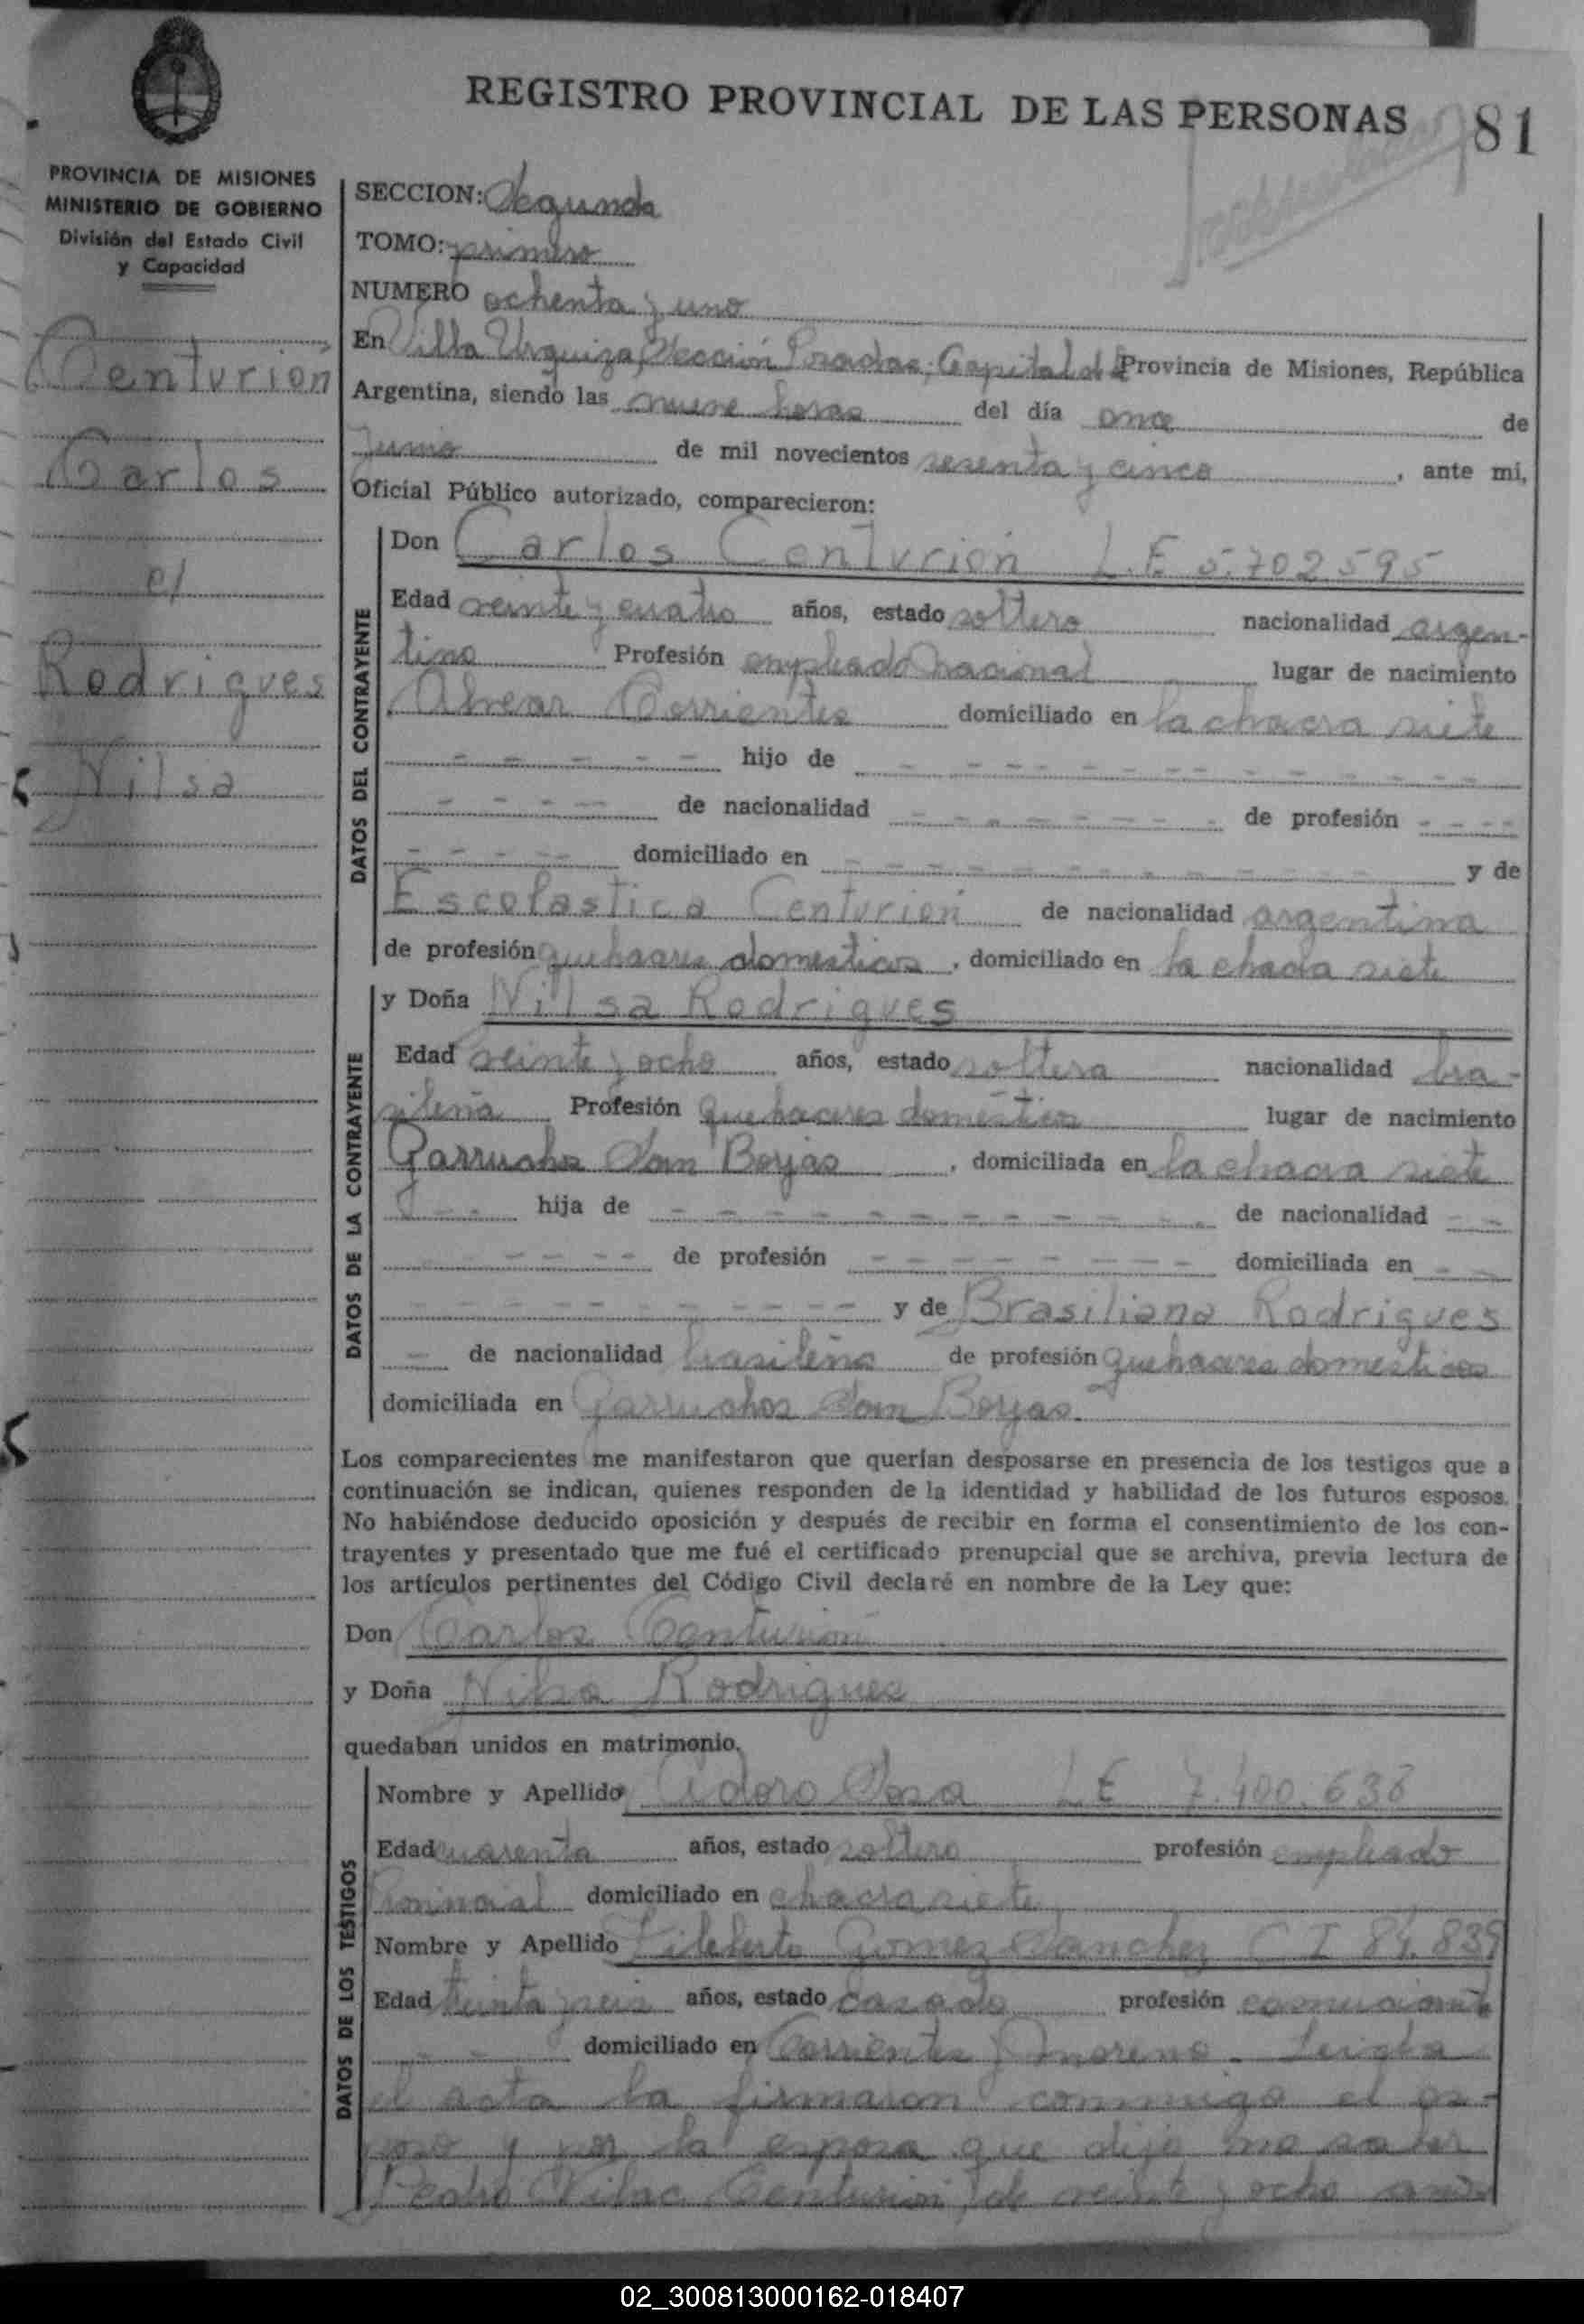 REGISTRO PROVINCIAL DE LAS PERSONAS 81
PROVINCIA DE MISIONES
MINISTERIO DE GOBIERNO
División del Estado Civil
y Capacidad
Centurión
Carlos
c/
Rodrigues
Nilsa
SECCION: Segunda
TOMO: primero
NUMERO ochenta y uno
En Villa Urquiza, Sección Posadas, Capital de Provincia de Misiones, República
Argentina, siendo las nueve horas del día once de
Junio de mil novecientos sesenta y cinco, ante mi,
Oficial Público autorizado, comparecieron:
DATOS DEL CONTRAYENTE
Don Carlos Centurión L.E. 5.702.595
Edad veinte y cuatro años, estado soltero nacionalidad argen-
tino Profesión empleado nacional lugar de nacimiento
Alvear Corrientes domiciliado en la chacra siete
- - - - - - hijo de - - - - - - - - - - - -
- - - - - de nacionalidad - - - - - - - - de profesión - - - -
- - - - - domiciliado en - - - - - - - - - - - y de
Escolastica Centurión de nacionalidad argentina
de profesión quehaceres domesticos, domiciliado en la chacra siete
DATOS DE LA CONTRAYENTE
y Doña Nilsa Rodrigues
Edad veinte y ocho años, estado soltera nacionalidad bra-
sileña Profesión quehaceres domésticos lugar de nacimiento
Garruchos San Borjas, domiciliada en la chacra siete
- - - hija de - - - - - - - - - - - - de nacionalidad - -
- - - - - de profesión - - - - - - - - domiciliada en - -
- - - - - - - - - - - y de Brasiliana Rodrigues
- de nacionalidad brasileña de profesión quehaceres domesticos
domiciliada en Garruchos San Borjas.
Los comparecientes me manifestaron que querían desposarse en presencia de los testigos que a
continuación se indican, quienes responden de la identidad y habilidad de los futuros esposos.
No habiéndose deducido oposición y después de recibir en forma el consentimiento de los con-
trayentes y presentado que me fué el certificado prenupcial que se archiva, previa lectura de
los artículos pertinentes del Código Civil declaré en nombre de la Ley que:
Don Carlos Centurión
y Doña Nilsa Rodrigues
quedaban unidos en matrimonio.
DATOS DE LOS TESTIGOS
Nombre y Apellido Sosa LE 7.400.636
Edad cuarenta años, estado soltero profesión empleado
Provincial domiciliado en chacra siete
Nombre y Apellido Fileberto Gomez Sanchez C I 84.839
Edad treinta y seis años, estado casado profesión comerciante
- - domiciliado en Corrientes y Moreno - Leida
el acta la firmaron conmigo el es-
poso y por la esposa que dijo no saber
Pedro Centurion, de veinte y ocho años
02_300813000162-018407